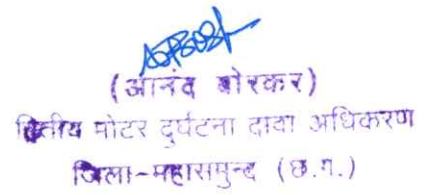 (आनंद बोरकर)
द्वितीय मोटर दुर्घटना दावा अधिकरण
जिला-महासमुन्द (छ.ग.)